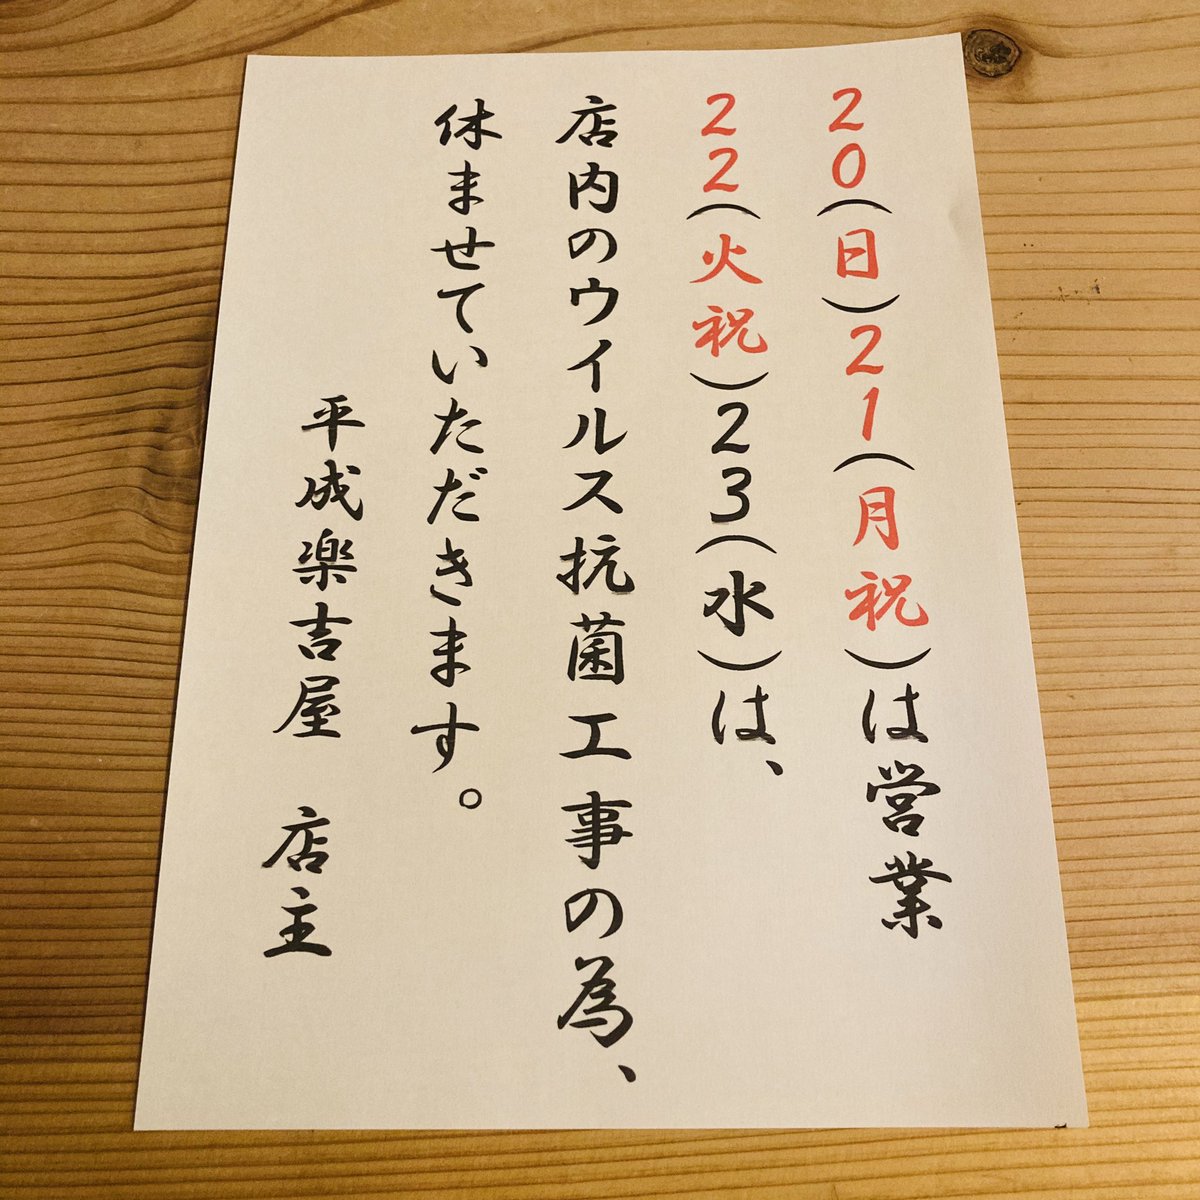 20(日)21(月祝)は営業
22(火祝)23(水)は、
店内のウイルス抗菌工事の為、
休ませていただきます。
平成楽吉屋　店主